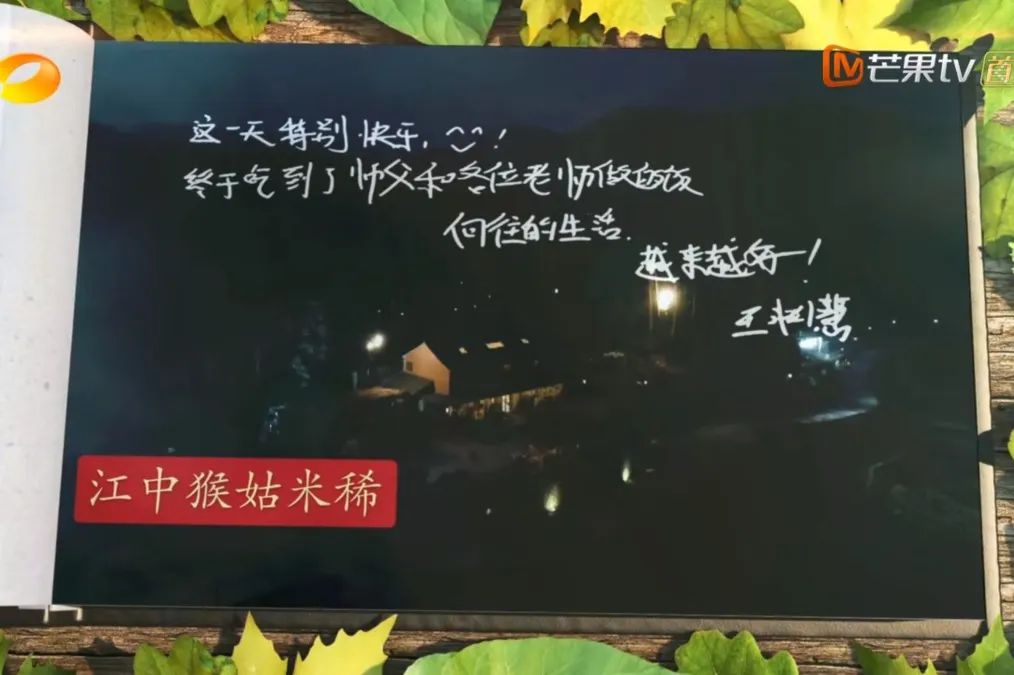 芒果tv
这一天特别快乐, ^^!
终于吃到了师父和各位老师做的饭
向往的生活.
越来越好!
江中猴姑米稀